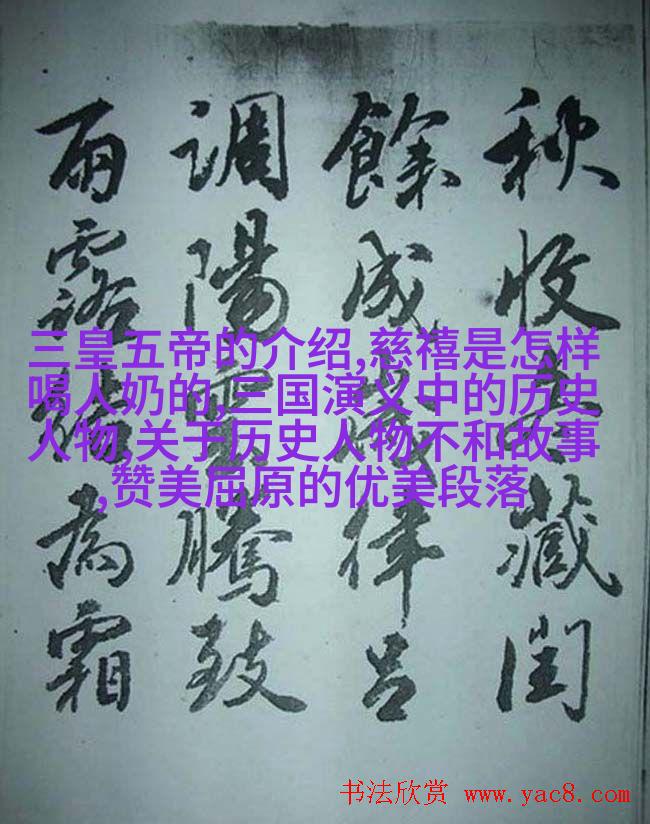 秋收冬藏閏
餘成歲律吕
調陽雲騰致
雨露結為霜
三皇五帝的介绍,慈禧是怎样
喝人奶的,三国演义中的历史
人物,关于历史人物不和故事
,赞美屈原的优美段落
书法欣赏 www.yac8.com